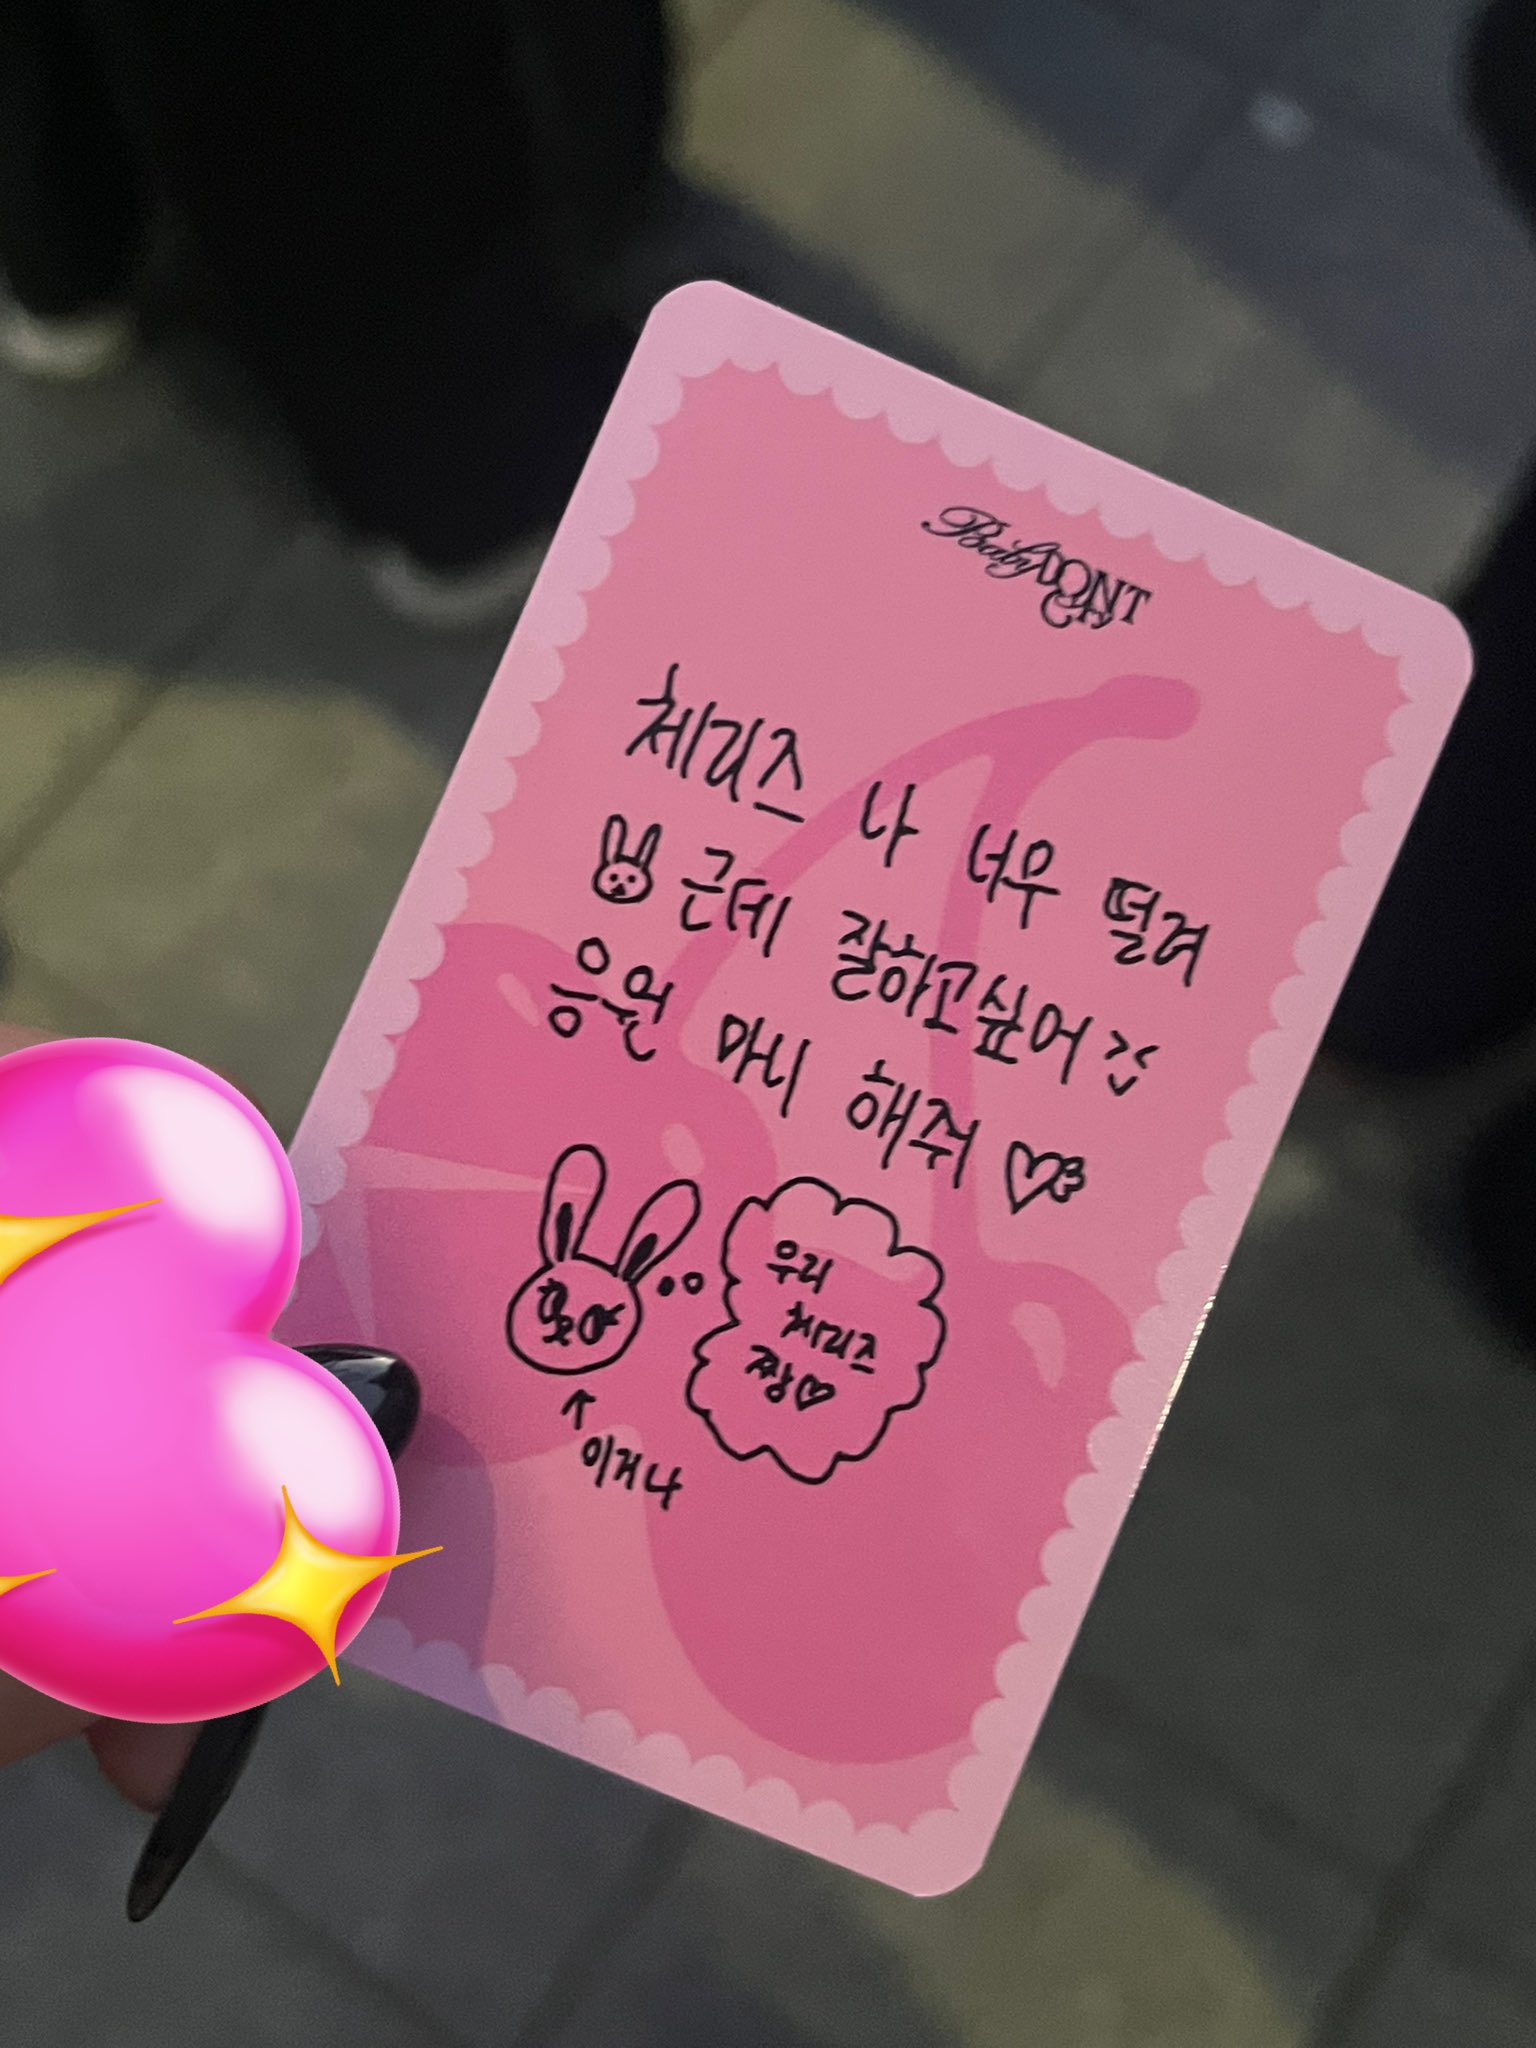 Baby DONT Cry
체리즈 나 너우 떨려
근데 잘하고싶어
응원 마니 해줘 ♡
우리
체리즈
짱♡
↑
이거나